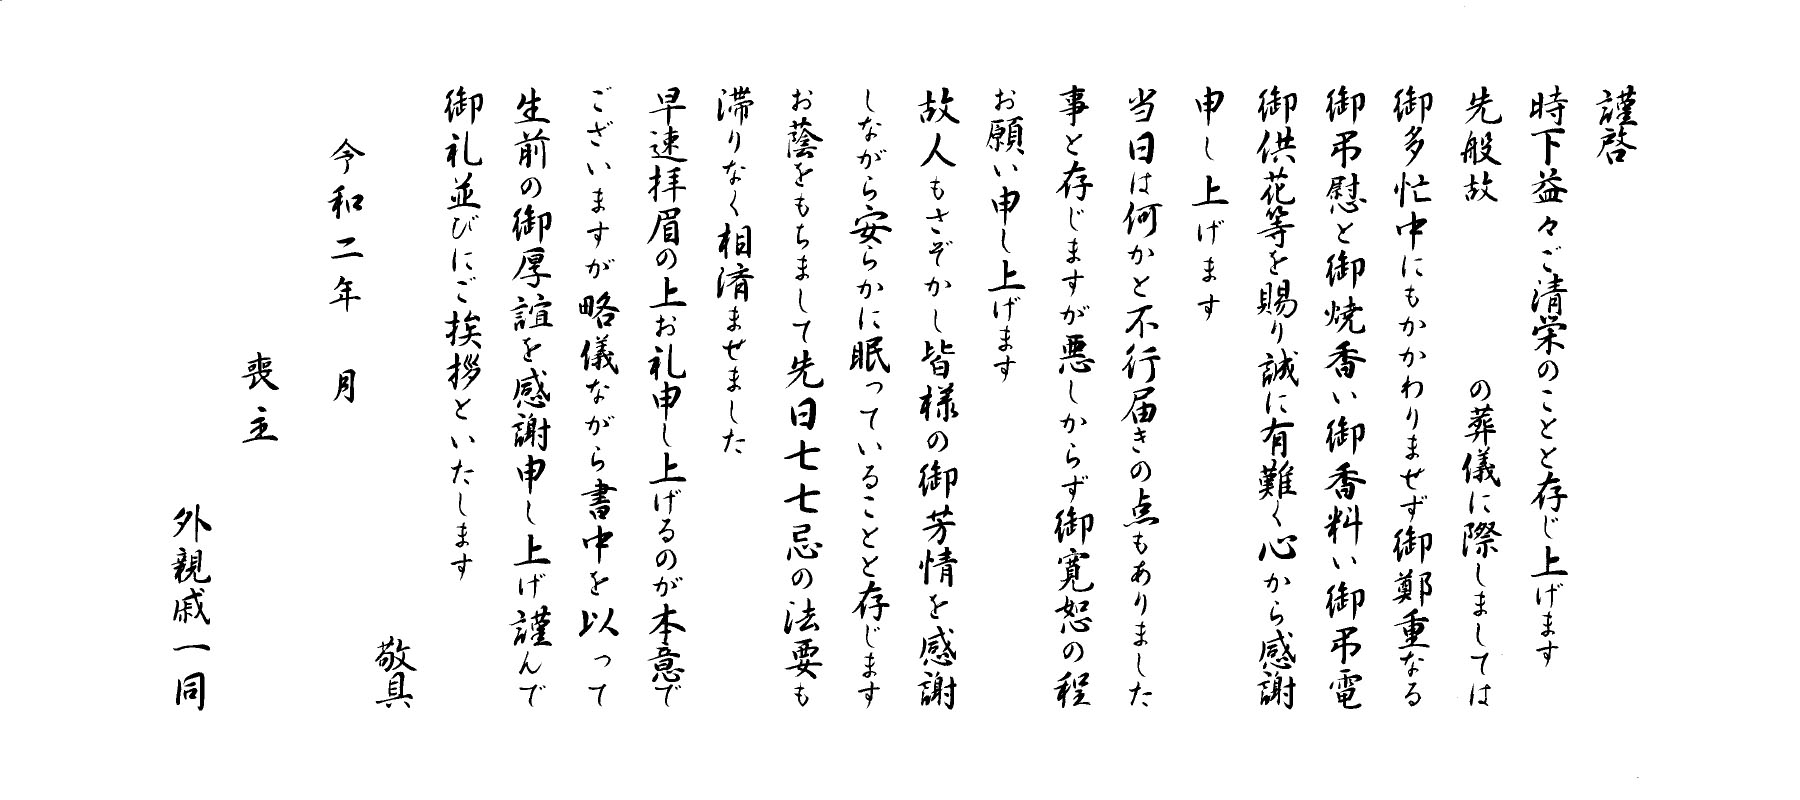 謹啓
時下益々ご清栄のことと存じ上げます
先般故　　　　の葬儀に際しましては
御多忙中にもかかわりませず御鄭重なる
御弔慰と御焼香い御香料い御弔電
御供花等を賜り誠に有難く心から感謝
申し上げます
当日は何かと不行届きの点もありました
事と存じますが悪しからず御寛恕の程
お願い申し上げます
故人もさぞかし皆様の御芳情を感謝
しながら安らかに眠っていることと存じます
お蔭をもちまして先日七七忌の法要も
滞りなく相済ませました
早速拝眉の上お礼申し上げるのが本意で
ございますが略儀ながら書中を以って
生前の御厚誼を感謝申し上げ謹んで
御礼並びにご挨拶といたします
敬具
令和二年　月
喪主
外親戚一同